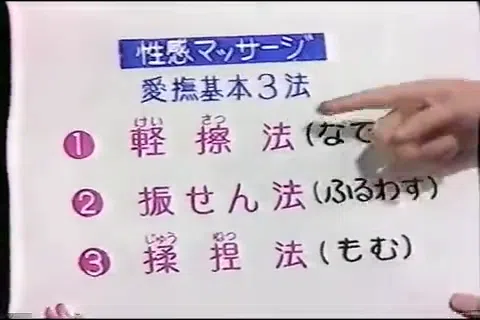 性感マッサージ
愛撫基本3法
① 軽擦法(なで
けい さつ
② 振せん法(ふるわす)
③ 揉捏法(もむ)
じゅう ねつ